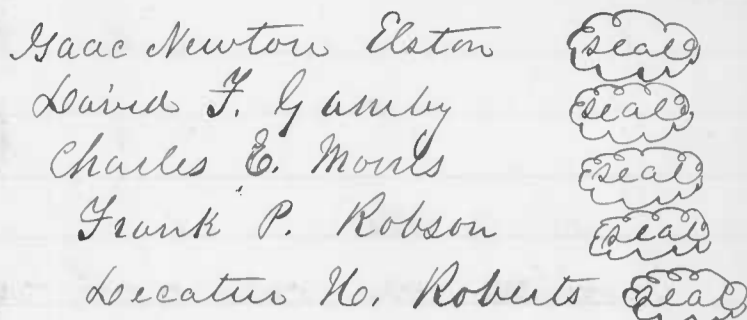 Isaac Newton Elston seal
David F. Gamby seal
Charles E. Morris seal
Frank P. Robson seal
Decatur H. Roberts seal